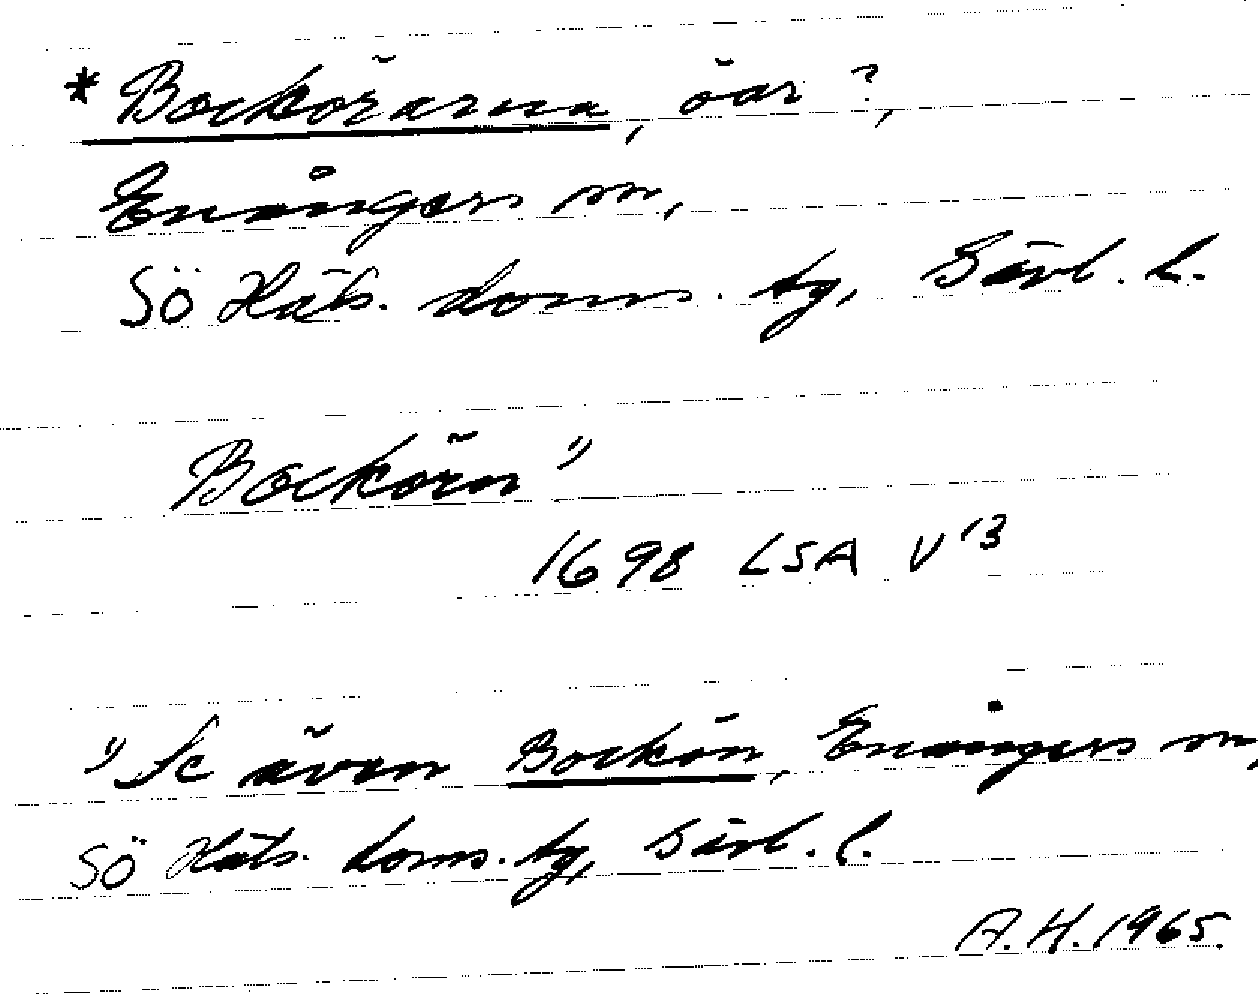 * Bockörarna, öar?,
Enångers sn,
SÖ Häls. doms. tg, Gävl. l.
Bockörn ¹⁾
1698 LSA V 13
¹⁾ Se även Bockön, Enångers sn,
SÖ Häls. doms. tg, Gävl. l.
A. H. 1965.